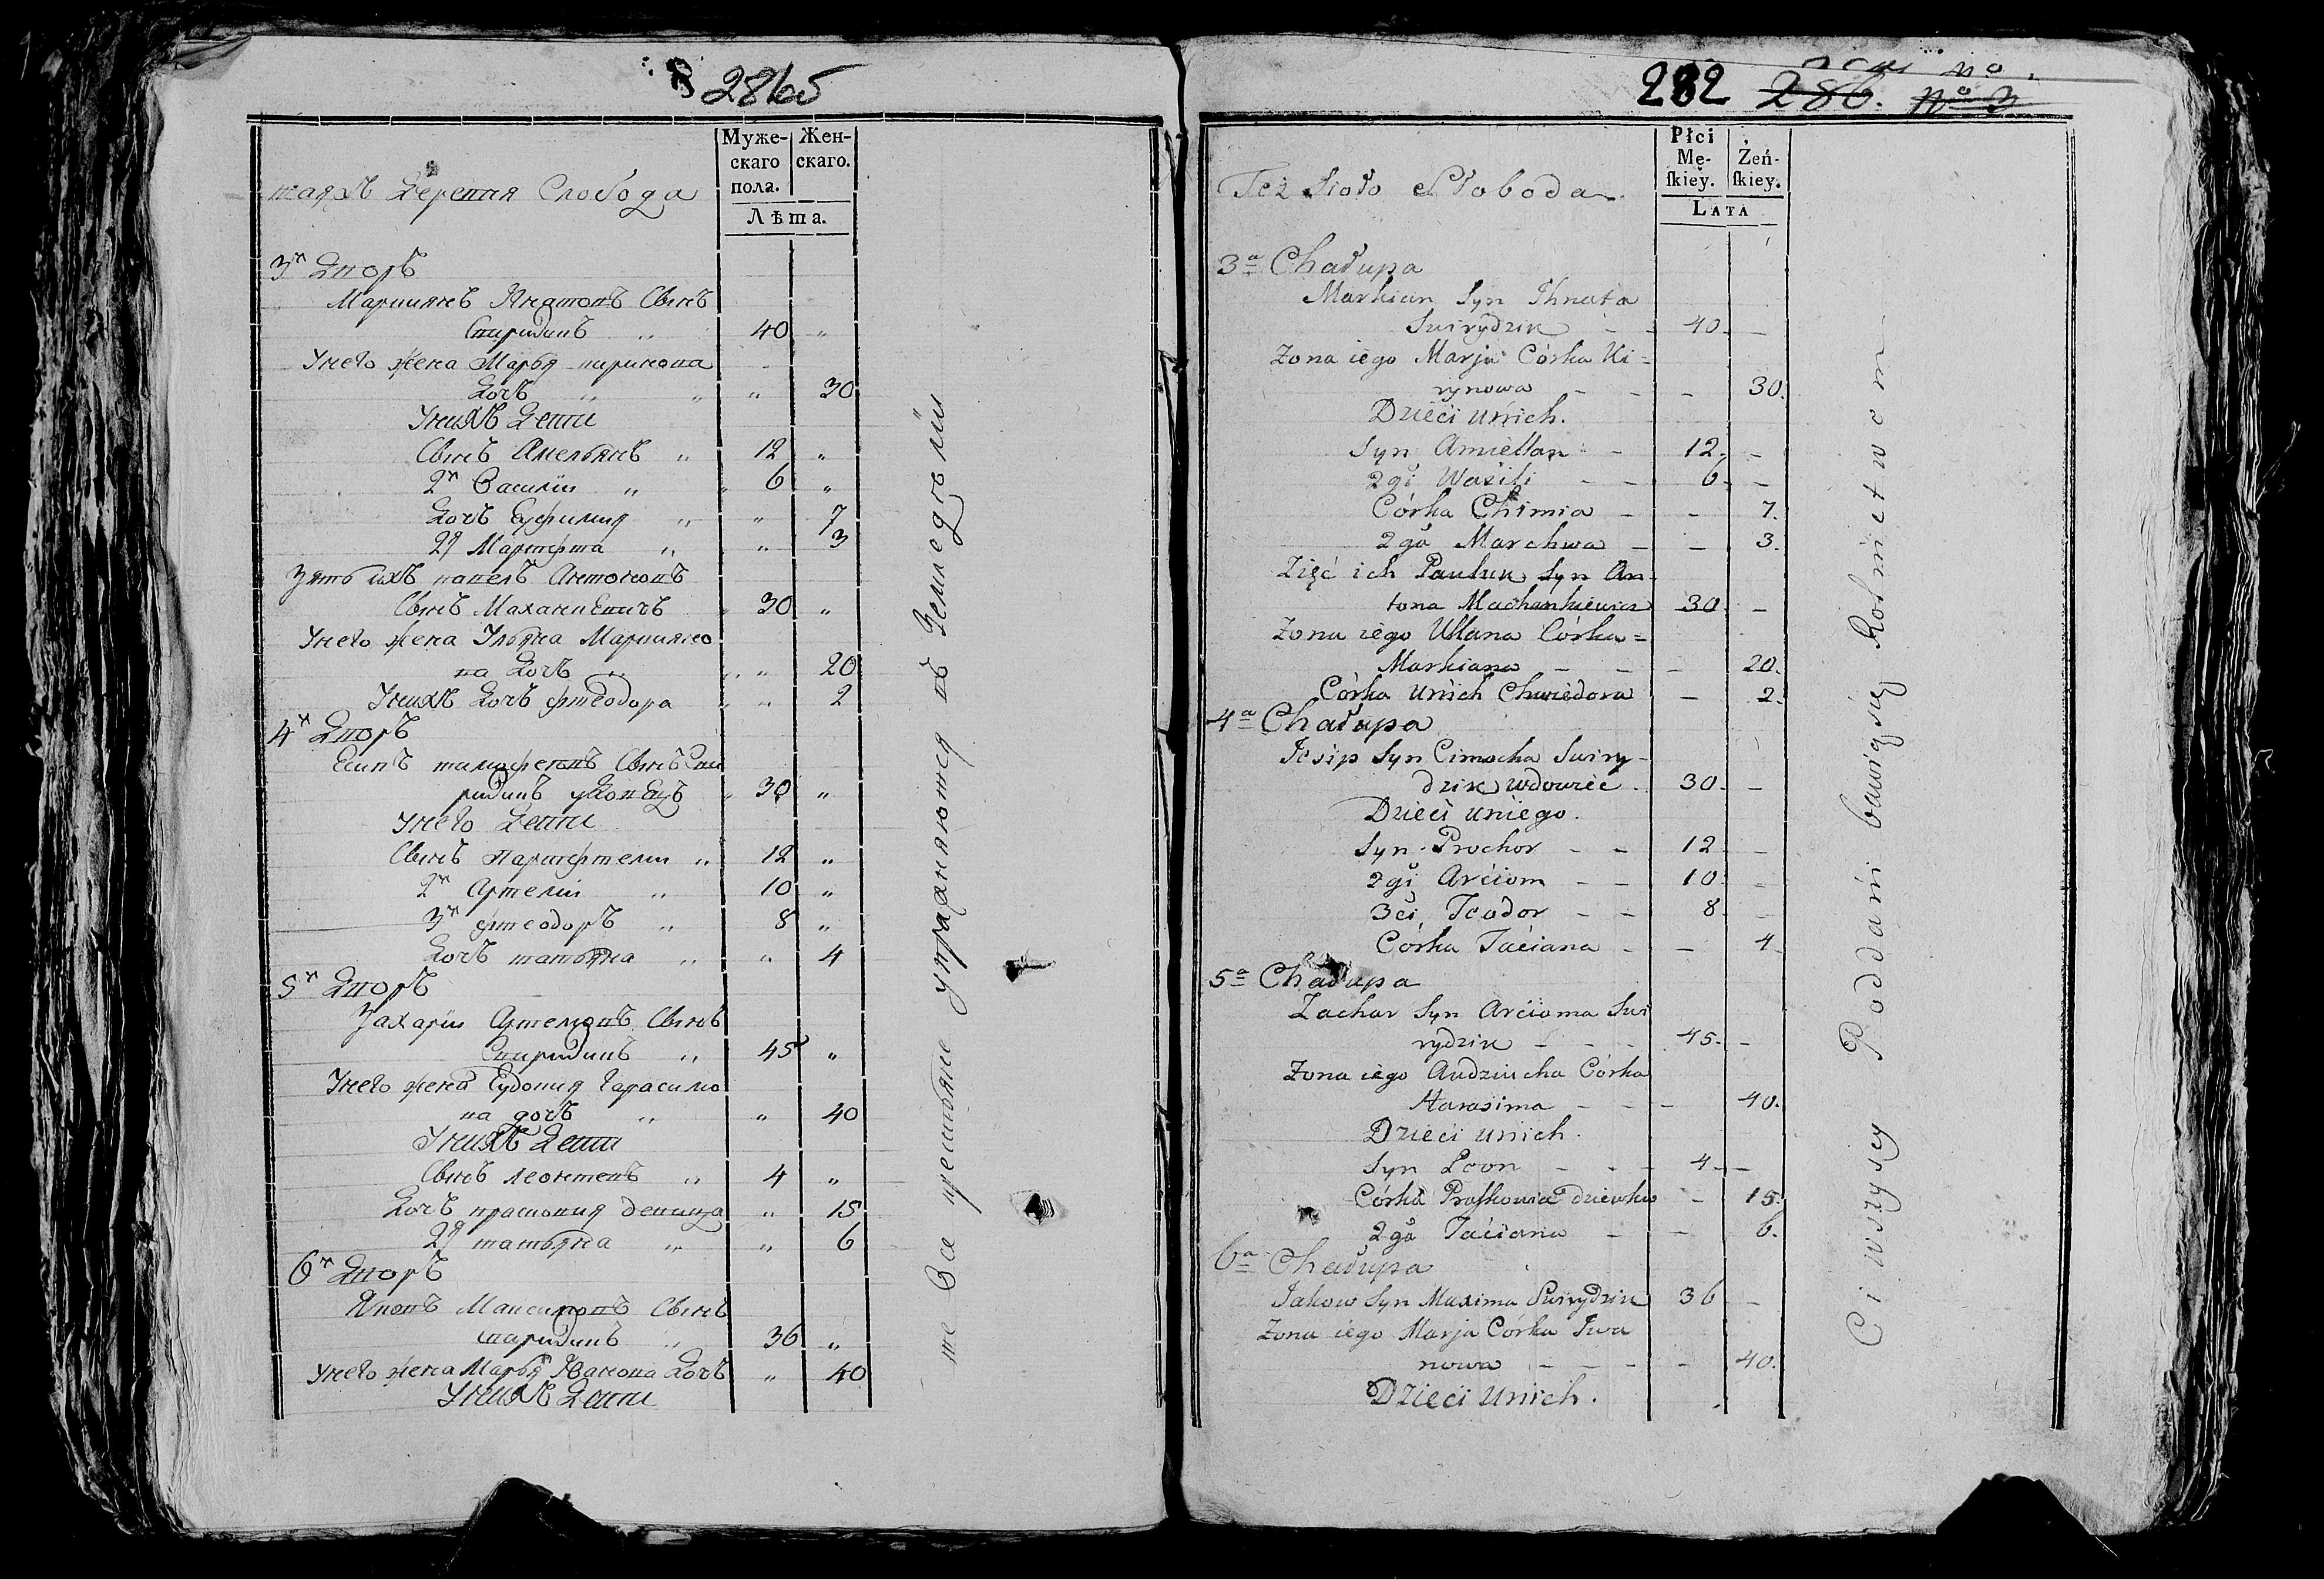 286
Муже-
скаго
пола.
Жен-
скаго.
Лѣта.
таяжъ Деревня Слобода
3й Дворъ
Марциянъ Игнатовъ Сынъ
Спиридинъ " 40 "
Унего жена Марья кирикова
Дочъ " " " 30
Унихъ Дети
Сынъ Амельянъ " 12 "
2й Василiи " 6 "
Дочъ Еуфимия " " 7
2я Марцефта " " 3
Зять ихъ павелъ Антоновъ
Сынъ Маханкевичъ 30 "
Унего жена Ульяна Марциано
ва Дочъ " " 20
Унихъ Дочъ фтеодора " 2
4й Дворъ
Есипъ тамофеевъ Сынъ Спи
ридинъ удовецъ 30 "
Унего Дети
Сынъ " 12 "
2й Артемiи " 10 "
3й фтеодоръ " 8 "
Дочъ татьяна " " 4
5й Дворъ
Захарiи Артемовъ Сынъ
Спиридинъ " 45 "
Унего жена Еудокия Гарасимо
ва дочъ " " 40
Унихъ Дети
Сынъ леонтеи " 4 "
Дочъ прасковия девица " 15
2я татьяна " " 6
6й Дворъ
Яковъ Максимовъ Сынъ
спиридинъ " 36 "
Унего жена Марья Иванова Дочъ " 40
Унихъ Дети
те Все крестьяне упражняются въ Земледелiи
282 286. No 3
Płci
Mę-
ſkiey.
Żeń-
ſkiey.
LATA
Też Sioło Słoboda
3a Chałupa
Markian Syn Ihnata
Swirydzik - - 40. -
Zona iego Marja Córka Ki=
rynowa - - - 30.
Dzieci unich.
Syn Amiellan - 12. -
2gi Wasili - - 6. -
Córka Chimia - - 7.
2ga Marchwa - - 3.
Zięć ich Pauluk Syn An-
tona Machankiewicz 30. -
Zona iego Ullana Córka=
Markiana - - - 20.
Córka unich Chwiedora - 2.
4a Chałupa
Josip Syn Cimocha Swiry-
dzik wdowiec. 30. -
Dzieci uniego.
Syn Prochor - - 12. -
2gi Arciom - - 10. -
3ci Teodor - - 8. -
Córka Taciana - - 4.
5a Chałupa
Zachar Syn Arcioma Swi
rydzik - - - 45. -
Zona iego Audziucha Córka
Harasima - - - 40.
Dzieci unich.
Syn Leon - - - 4. -
Córka Praſkowia dziewka - 15.
2ga Taciana - - 6.
6a Chałupa
Jakow Syn Maxima Swirydzik 36 -
Zona iego Marja Córka Iwa
nowa - - - - 40.
Dzieci unich.
Ci wszyscy Poddani bawią się Rolnictwem